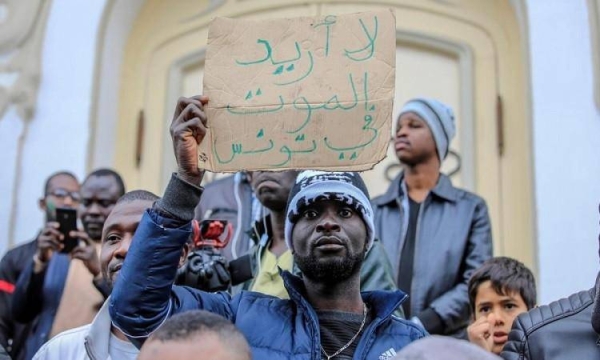 لا أريد
الموت
في تونس